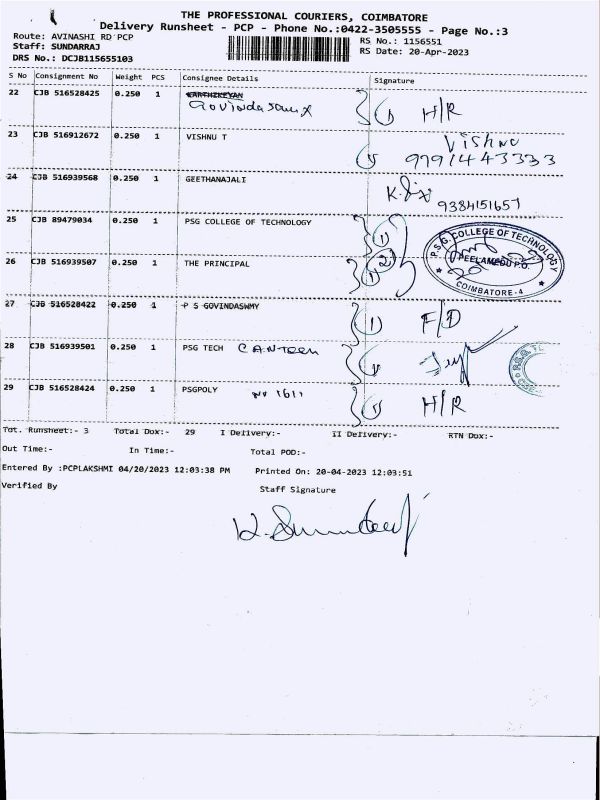 THE PROFESSIONAL COURIERS, COIMBATORE
Delivery Runsheet - PCP - Phone No.:0422-3505555 - Page No.:3
Route: AVINASHI RD PCP
RS No.: 1156551
Staff: SUNDARRAJ
RS Date: 20-Apr-2023
DRS No.: DCJB115655103
S No Consignment No Weight PCS Consignee Details Signature
22 CJB 516528425 0.250 1 KARTHIKEYAN
Govindasamy (1) H/R
23 CJB 516912672 0.250 1 VISHNU T Vishnu
(1) 9791443333
24 CJB 516939568 0.250 1 GEETHANAJALI
9384151657
25 CJB 89479034 1 PSG COLLEGE OF TECHNOLOGY (1)
P.S.G. COLLEGE OF TECHNOLOGY
PEELAMEDU P.O.
COIMBATORE - 4
26 CJB 516939507 0.250 1 THE PRINCIPAL (2)
(1)
27 CJB 516528422 0.250 1 P S GOVINDASWMY
(1) F/D
28 CJB 516939501 0.250 1 PSG TECH CANTEEN (1)
29 CJB 516528424 0.250 1 PSGPOLY No 1611 (1) H/R
Tot. Runsheet:- 3 Total Dox:- 29 I Delivery:- II Delivery:- RTN Dox:-
Out Time:- In Time:- Total POD:-
Entered By :PCPLAKSHMI 04/20/2023 12:03:38 PM Printed On: 20-04-2023 12:03:51
Verified By Staff Signature